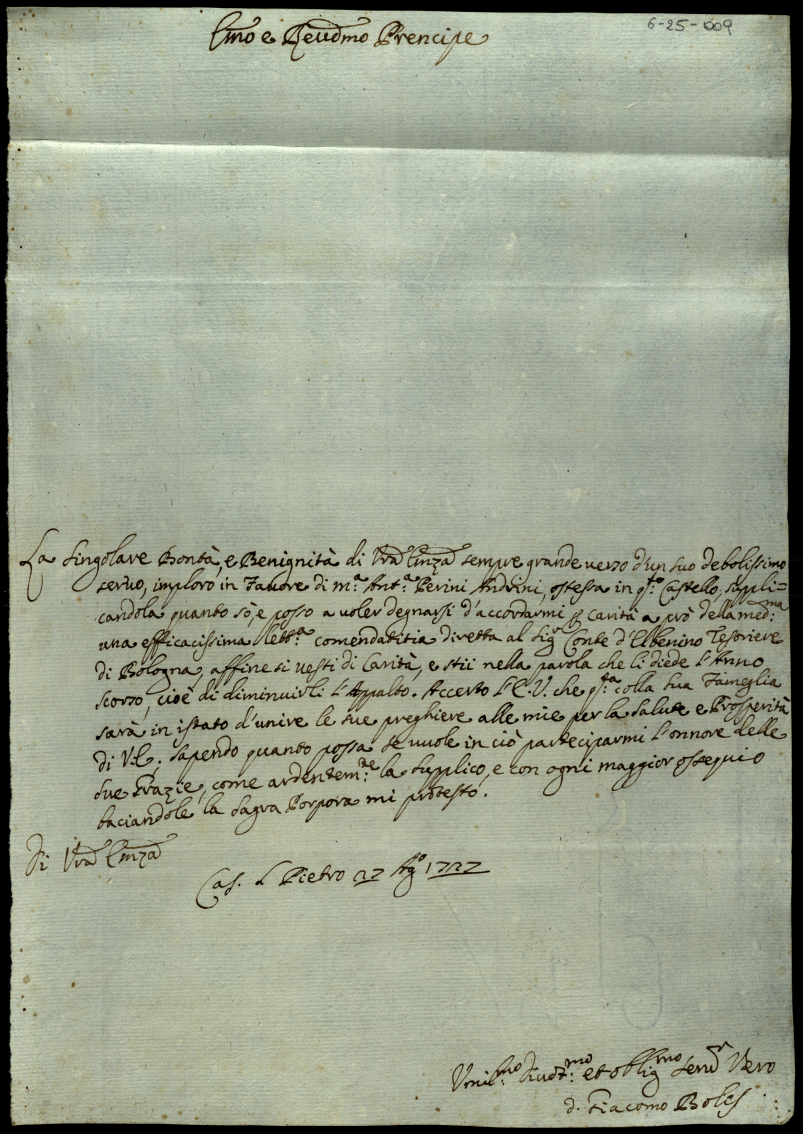 6-25-009
Emo e Reudmo Prencipe
La singolare Bontà, e Benignità di Vrã Emzã sempre grande verso d'un suo debolissimo
servo, imploro in Favore di m.ª Ant.ª Perini Andrini, ostessa in q.to Castello, suppli=
candola quanto sò, e posso a voler degnarsi d'accordarmi p carità a prò della med:ma
una efficacissima lett.ra comendatitia diretta al Sig.r Conte d'Elbenino Tesoriere
di Bologna, affine si vesti di Carità, e stii nella parola che li diede l'Anno
scorso, cioè di diminuirli l'Appalto. Accerto l'E.V. che q.ta colla sua Fameglia
sarà in istato d'unire le sue preghiere alle mie per la salute e Prosperità
di V.E. sapendo quanto possa se vuole in ciò parteciparmi l'onnore delle
sue Grazie, come ardentem.te la supplico, e con ogni maggior ossequio
baciandole la sagra Porpora mi protesto.
Di Vrã Emzã
Cas. S Pietro 27 Ag.o 1727
Vmil.mo Diuot.mo et oblig.mo Seru.r Vero
d. Giacomo